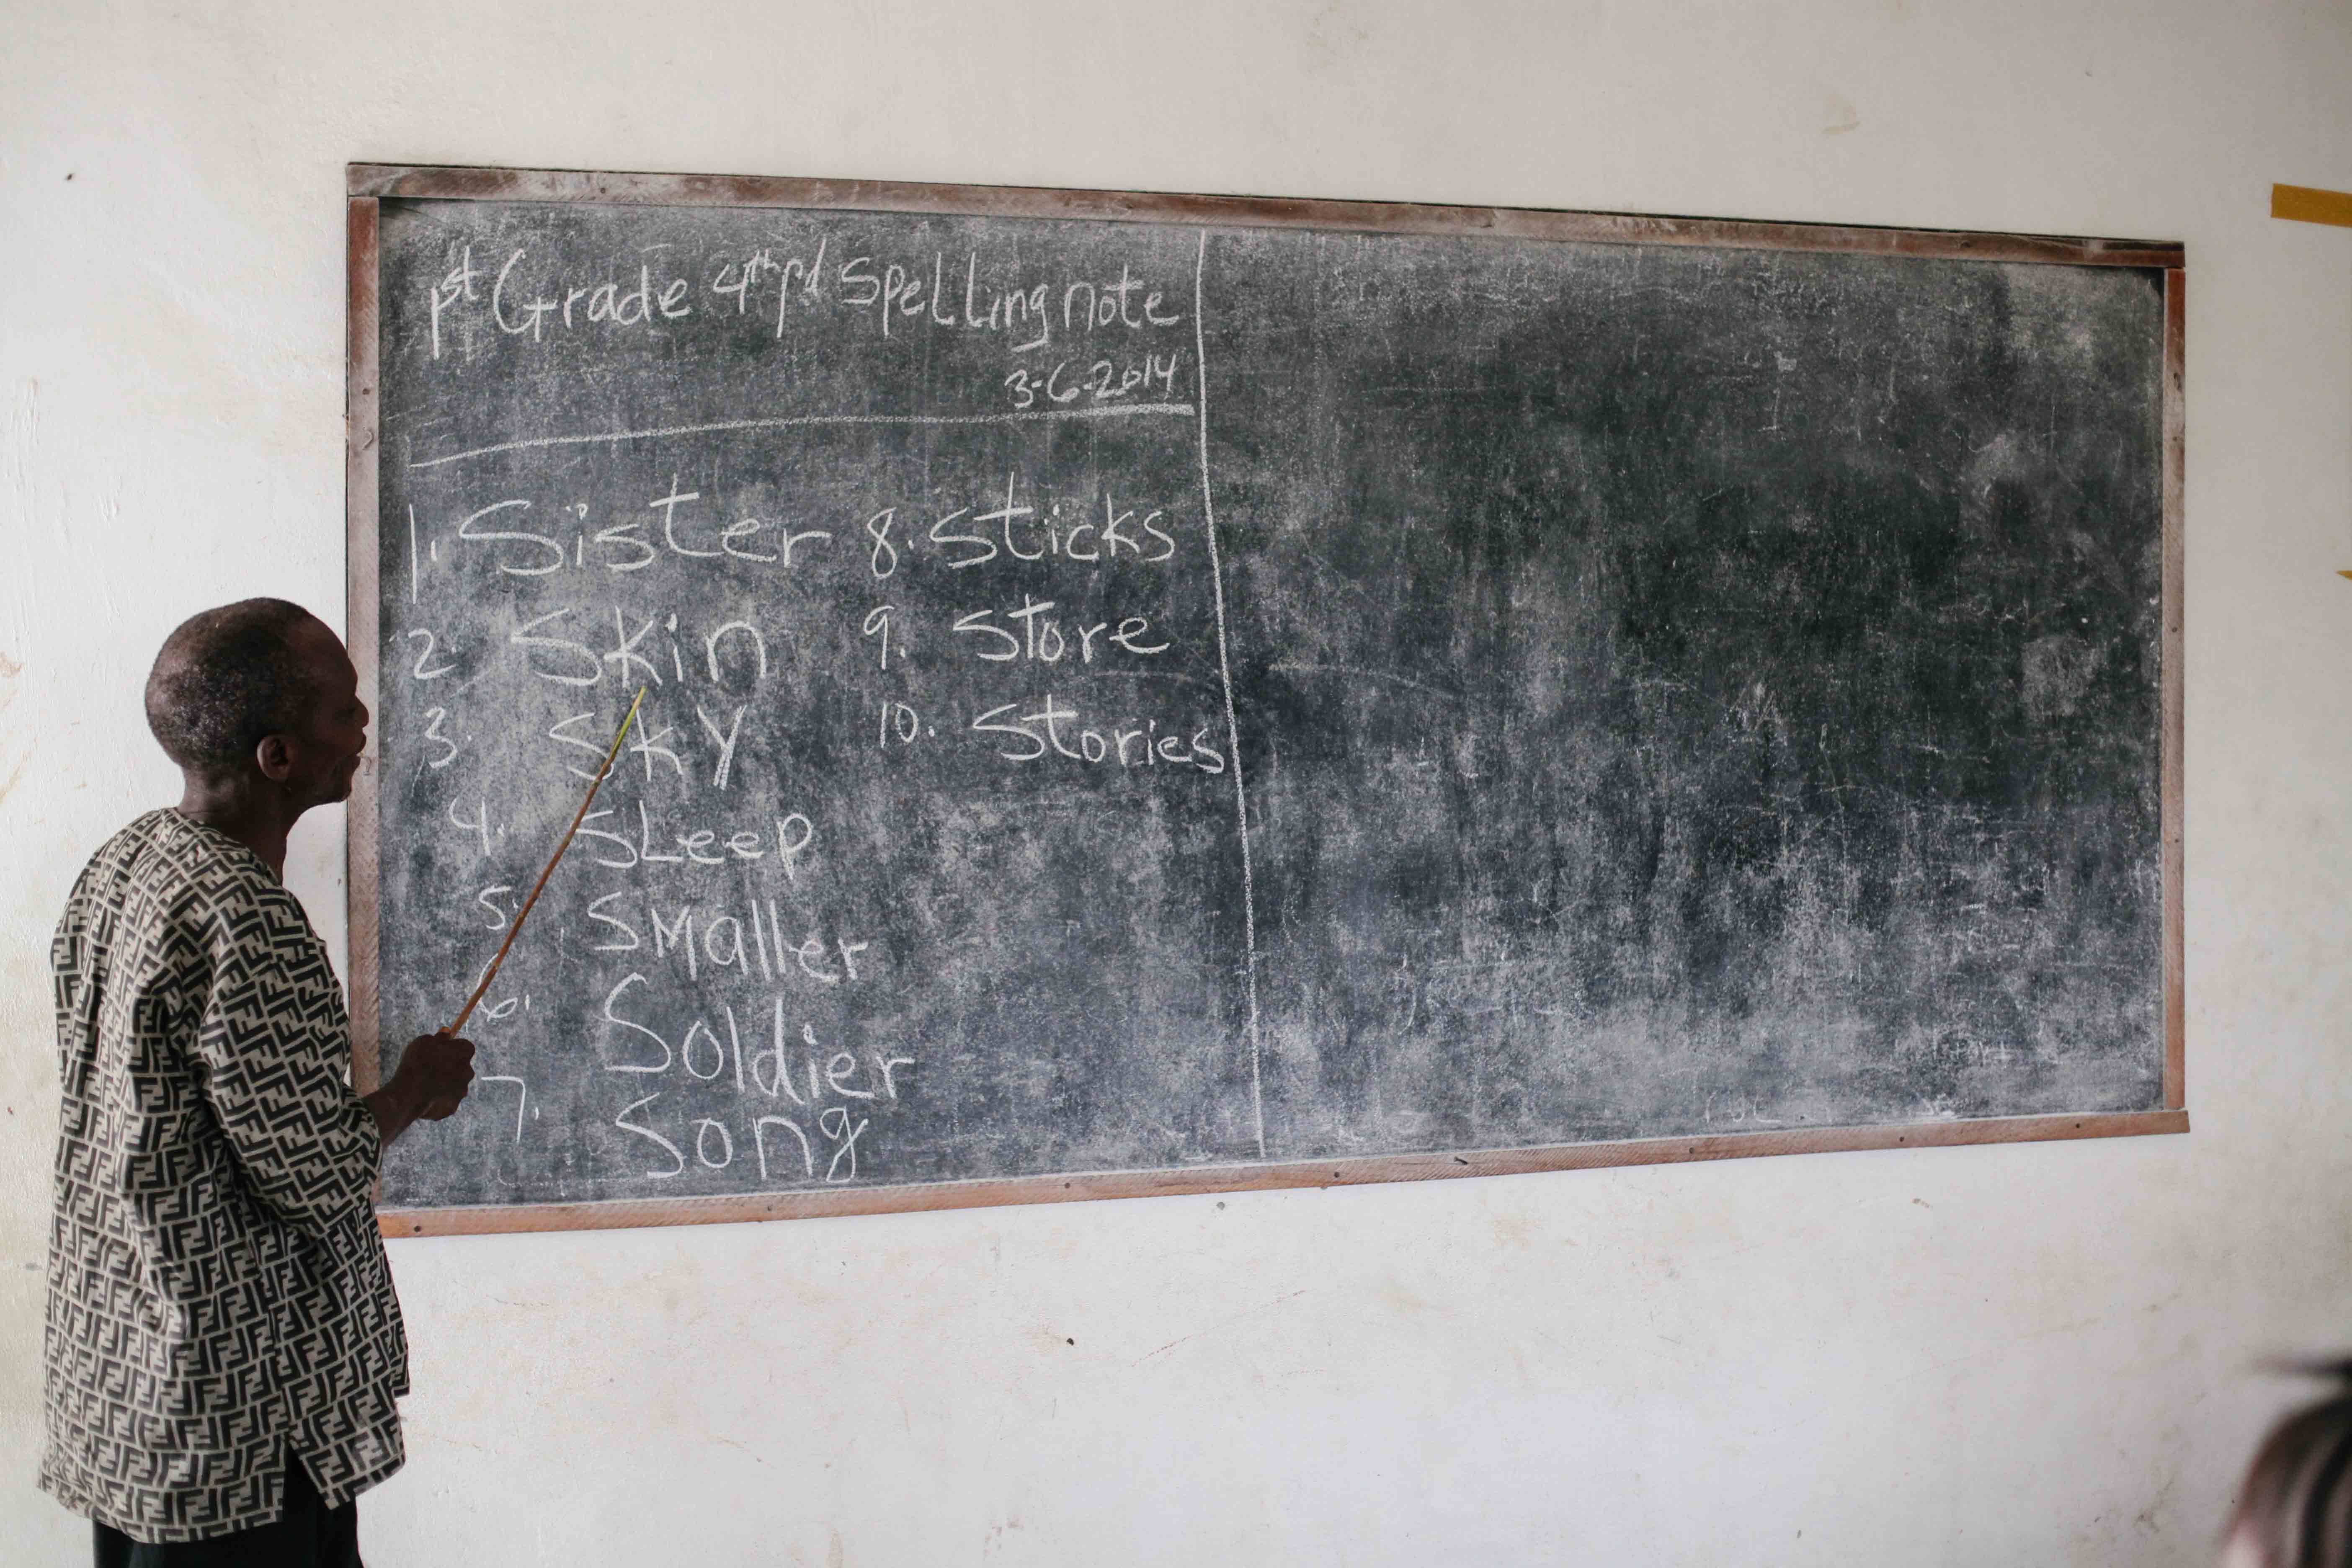 1st Grade 4th pd Spelling note
3-6-2014
1. Sister
2. Skin
3. Sky
4. Sleep
5. Smaller
6. Soldier
7. Song
8. Sticks
9. Store
10. Stories